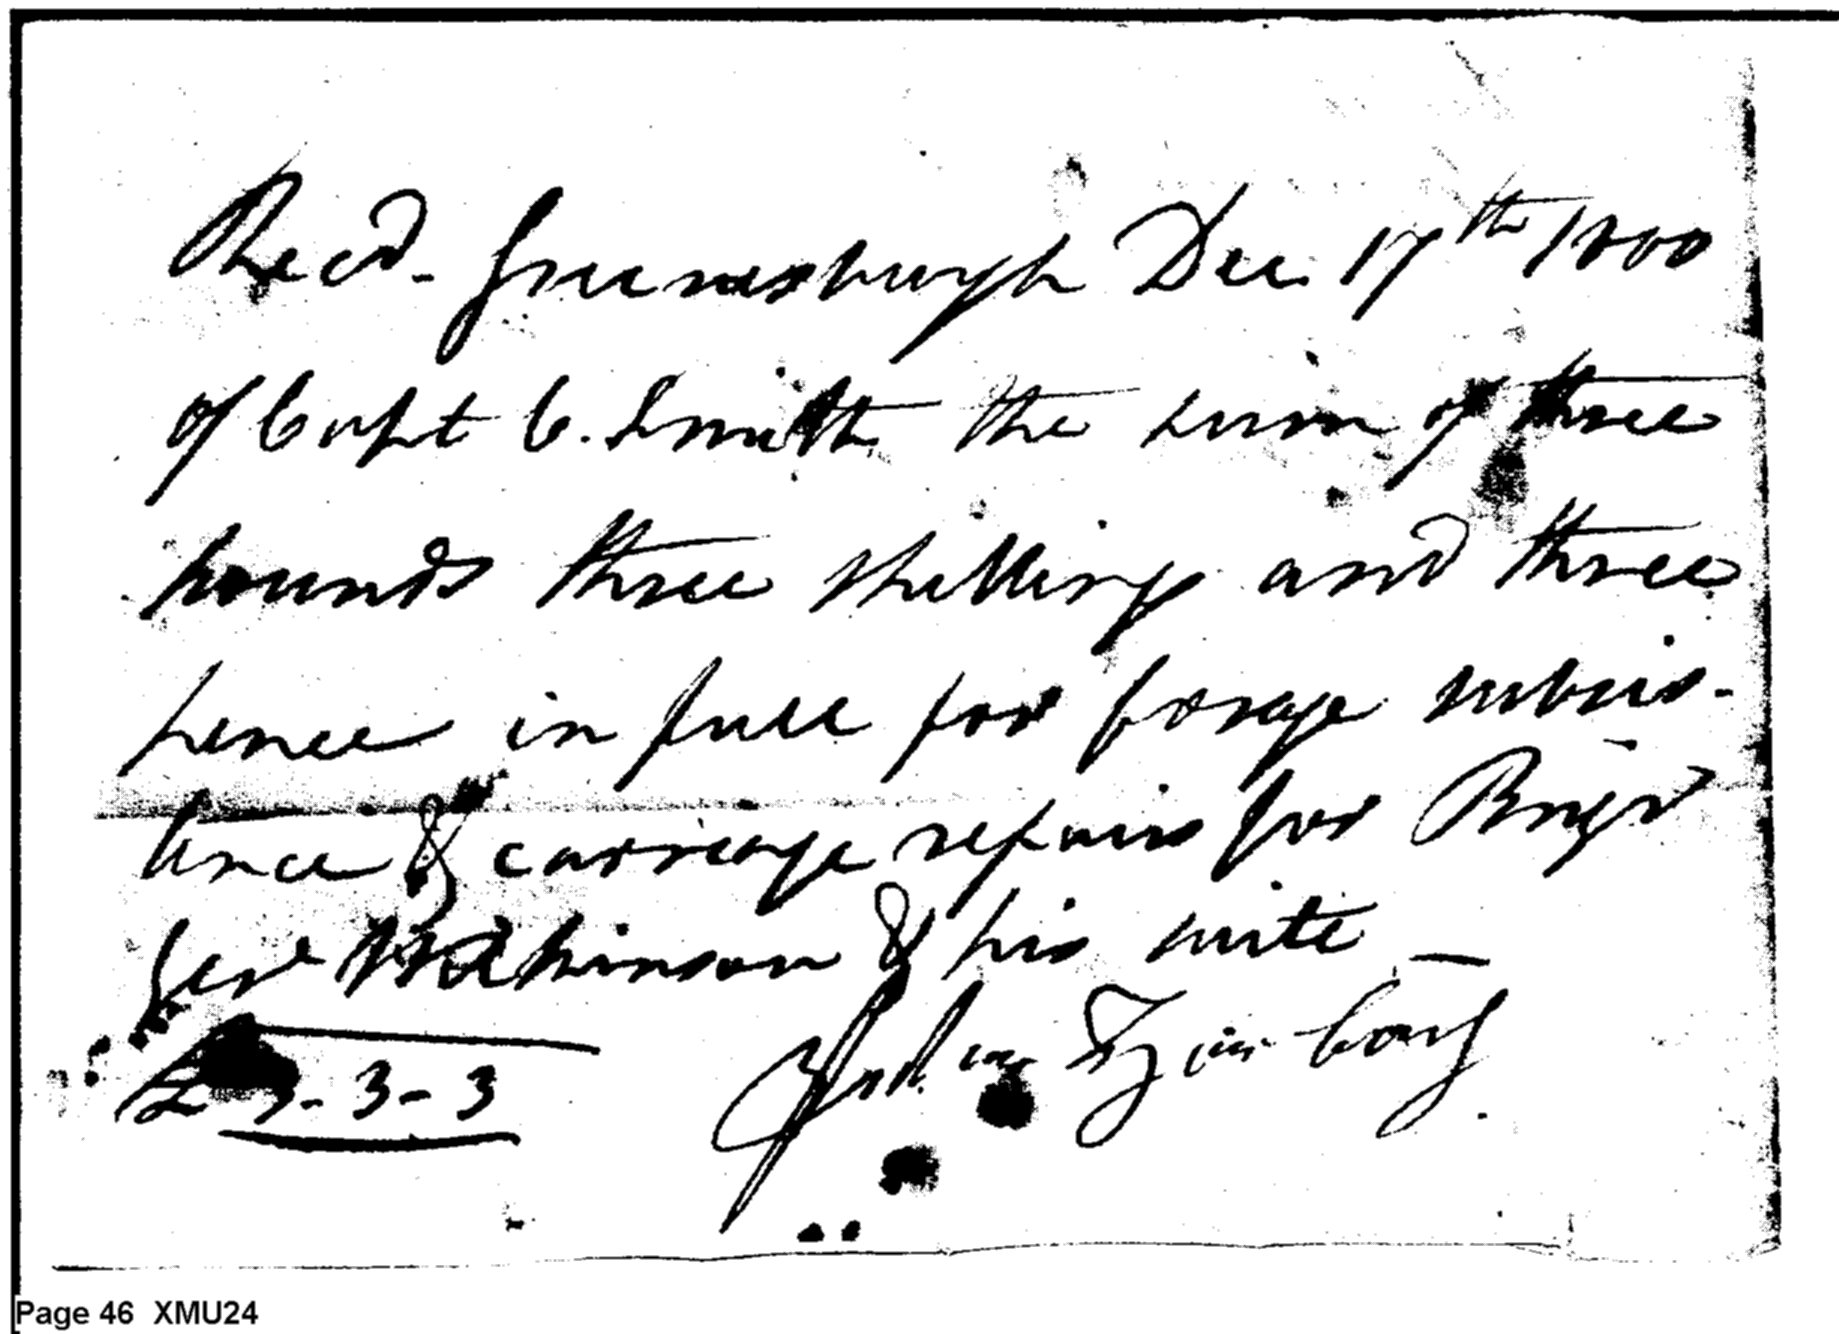 Recd. Greensburgh Dec. 17th 1800
of Capt C. Smith the sum of three
pounds three shillings and three
pence in full for forage subsis-
tence & carriage repairs for Brigd
Genl Wilkinson & his suite —
£ 3-3-3
Page 46 XMU24